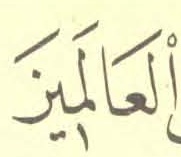 اْلعَالَمِينَ